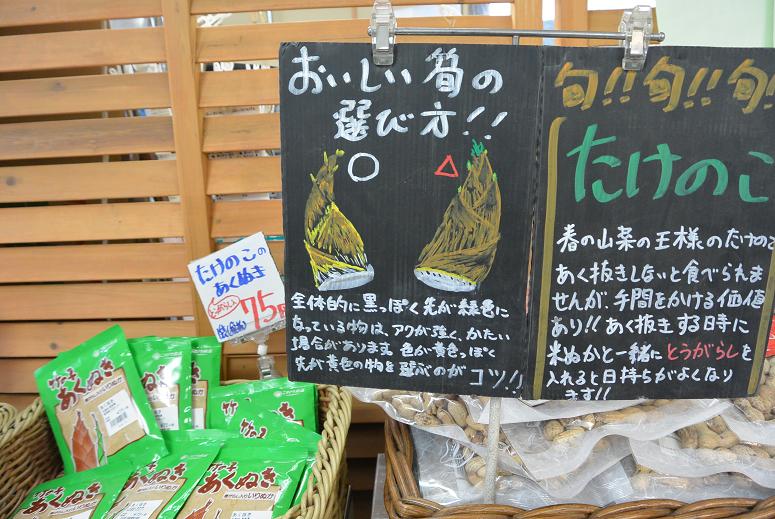 おいしい筍の
選び方!!
○
△
全体的に黒っぽく先が緑色に
なっている物は、アクが強く、かたい
場合があります。色が黄色っぽく
先が黄色の物を選ぶのが コツ!!
旬!!旬!!旬
たけのこ
春の山菜の王様のたけのこ
あく抜きしないと食べられま
せんが、手間をかける価値
あり!!あく抜きする時に
米ぬかと一緒にとうがらしを
入れると日持ちがよくなり
ます!!
たけのこの
あくぬき
75円
竹の子
あくぬき
いりぬか
竹の子
あくぬき
竹の子
あくぬき
いりぬか